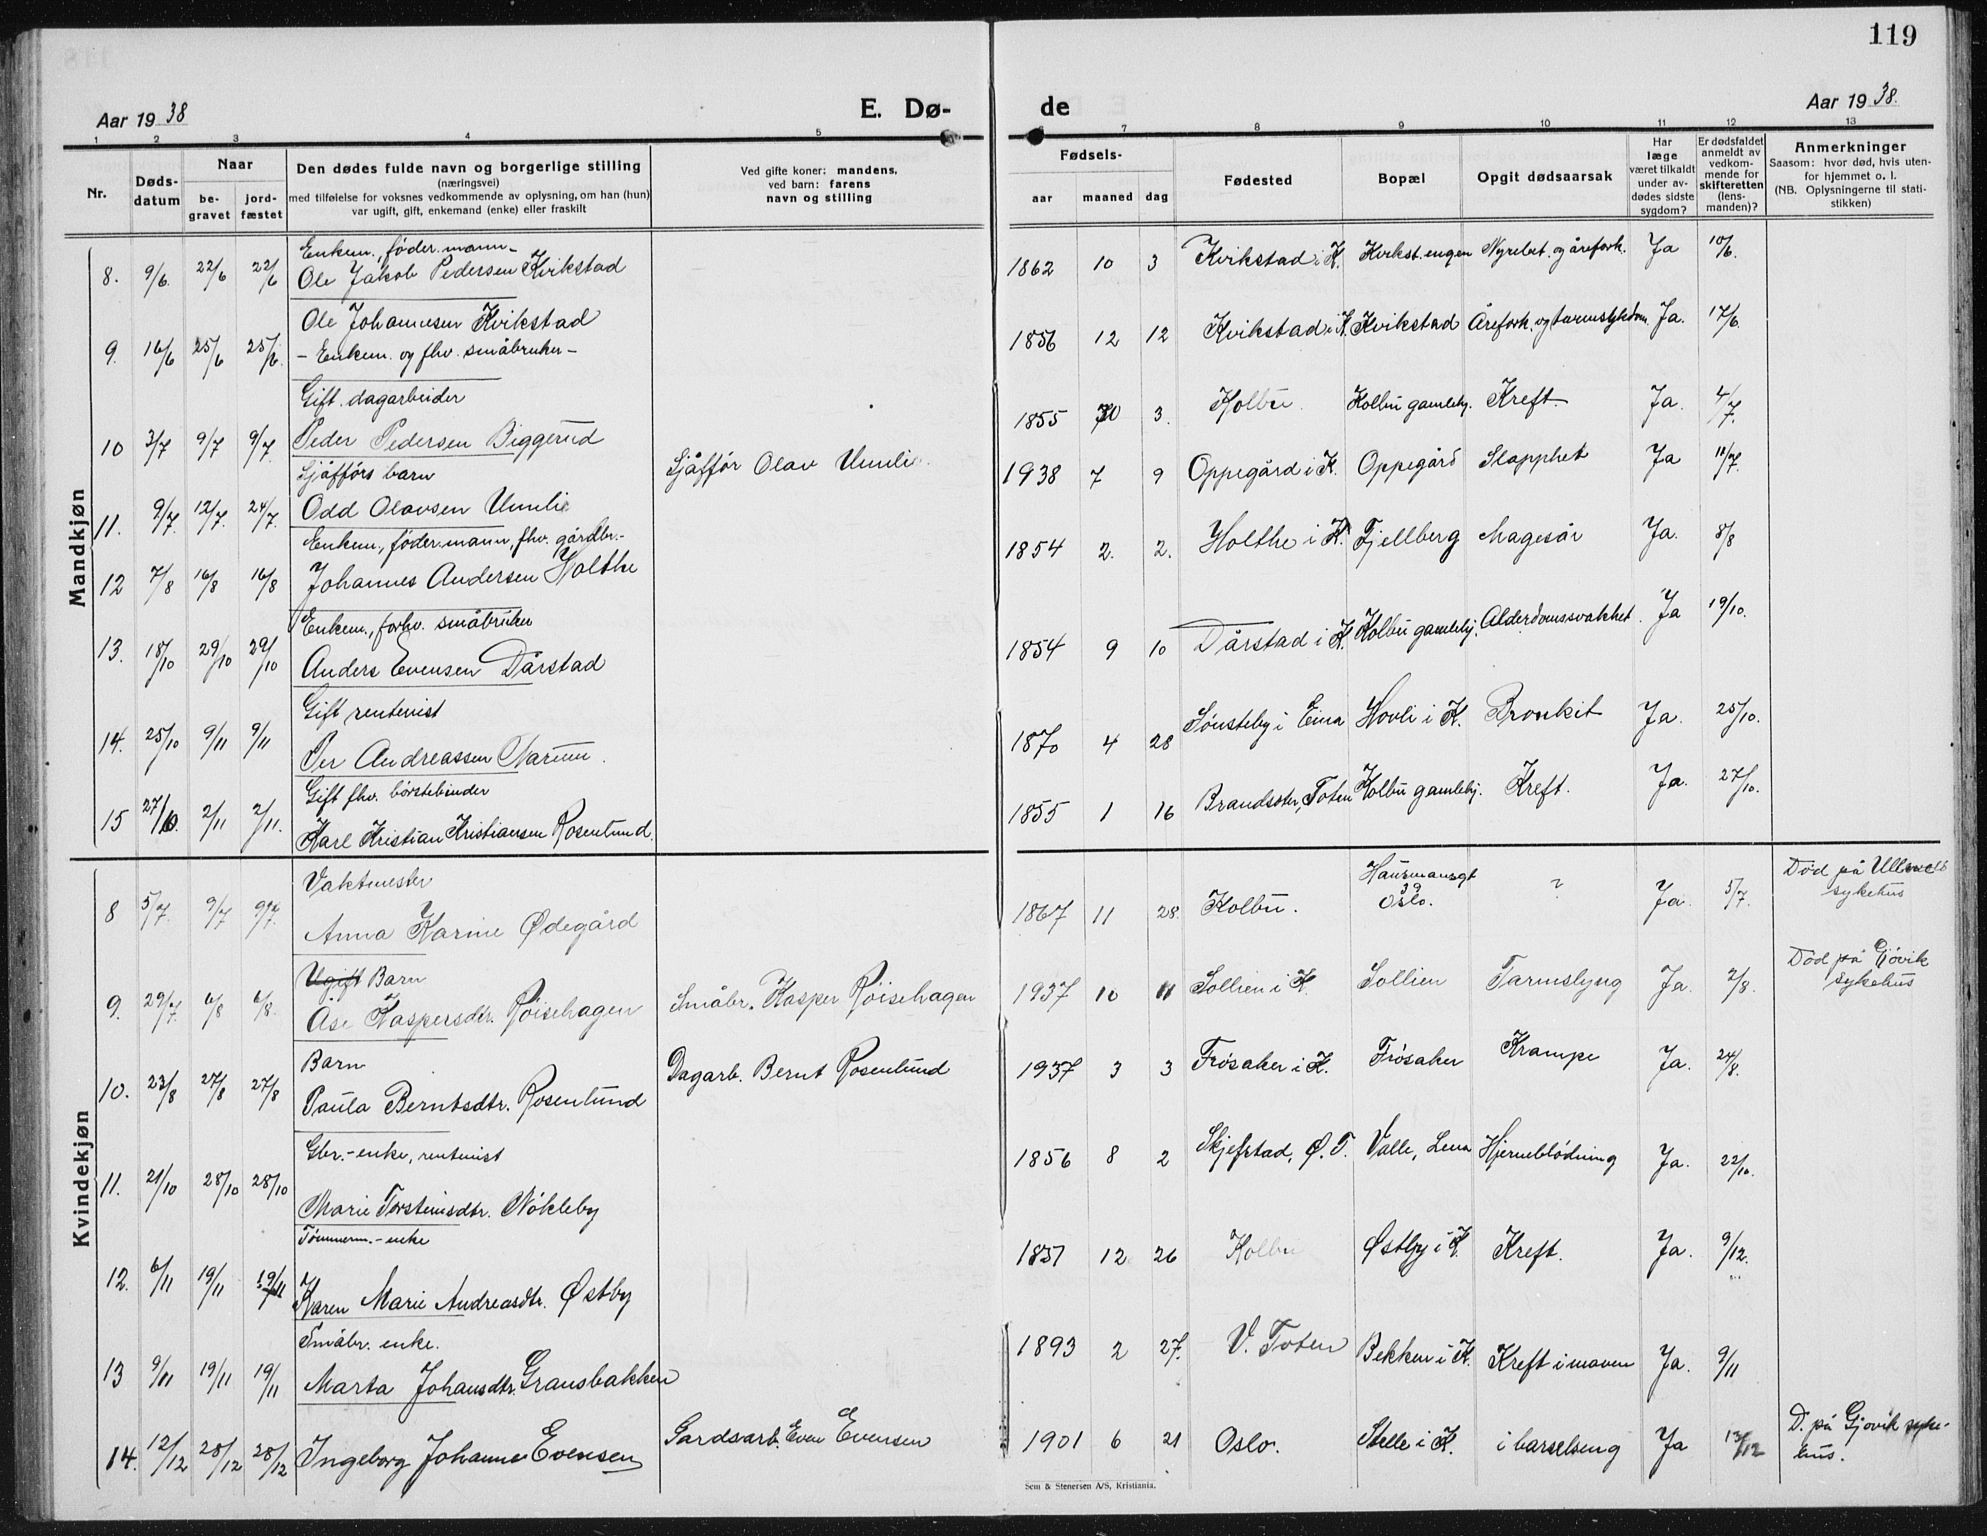 119
Aar 19 38
E. Dø-
de
Aar 19 38.
1 2 3 4 5 6 7 8 9 10 11 12 13
Nr.
Døds-
datum
Naar
be-
gravet
jord-
fæstet
Den dødes fulde navn og borgerlige stilling
(næringsvei)
med tilføielse for voksnes vedkommende av oplysning, om han (hun)
var ugift, gift, enkemand (enke) eller fraskilt
Ved gifte koner: mandens,
ved barn: farens
navn og stilling
Fødsels-
aar maaned dag
Fødested
Bopæl
Opgit dødsaarsak
Har
læge
været tilkaldt
under av-
dødes sidste
sygdom?
Er dødsfaldet
anmeldt av
vedkom-
mende for
skifteretten
(lens-
manden)?
Anmerkninger
Saasom: hvor død, hvis uten-
for hjemmet o. l.
(NB. Oplysningerne til stati-
stikken)
Mandkjøn
Enkem., føder.mann-
8. 9/6 22/6 22/6 Ole Jakob Pedersen Kvikstad 1862 10 3 Kvikstad i K. Kvikst.engen Nyrebet. og årefork. Ja 10/6.
Ole Johannesen Kvikstad
9. 16/6 25/6 25/6. - Enkem. og fhv. småbruker- 1856 12 12 Kvikstad i K. Kvikstad Årefork. og tarmslyngdom Ja. 17/6.
Gift. dagarbeider
10 3/7 9/7 9/7. Peder Pedersen Biggerud 1855 10 3. Kolbu. Kolbu gamlehj. Kreft. Ja. 4/7.
Sjåførs barn
11. 9/7. 12/7. 24/7. Odd Olavsen Uunli Sjåffør Olav Uunli. 1938 7 9 Oppegård i K. Oppegård Slapphet Ja 11/7.
Enkem., føder.mann, fhv. gårdbr.-
12 7/8 16/8 16/8 Johannes Andersen Holthe 1854 2. 2. Holthe i K. Fjellberg Magesår Ja. 8/8
Enkem., forhv. småbruker
13. 18/10 29/10 29/10 Anders Evensen Dårstad 1854 9 10 Dårstad i K. Kolbu gamlehj. Alderdomssvakhet. Ja 19/10.
Gift, rentenist
14. 25/10 9/11 9/11 Per Andreassen Narum. 1870 4 28 Sønsteby i Eina Hovli i K. Bronkit Ja. 25/10.
Gift fhv. børstebinder
15 27/10. 2/11 2/11. Karl Kristian Kristiansen Rosenlund. 1855 1 16 Toten Kolbu gamlehj. Kreft. Ja. 27/10.
Kvindekjøn
Vaktmester
8 5/7. 9/7 9/7. Anna Karine Ødegård 1867 11 28. Kolbu. Hausmansgt
39
Oslo. ? Ja. 5/7. Død på Ullevål
sykehus
Ugift Barn
9. 29/7. 6/8 6/8. Åse Kaspersdtr. Røisehagen Småbr. Kasper Røisehagen 1937 10 11 Sollien i K. Sollien Tarmslyng Ja. 2/8. Død på Gjøvik
sykehus
Barn
10. 23/8 27/8 27/8 Paula Berntsdtr. Rosenlund Dagarb. Bernt Rosenlund 1937 3 3 Frøsaker i K. Frøsaker Krampe Ja. 24/8.
Gbr.-enke, rentenist
11. 21/10 28/10 28/10 Marie Torsteinsdtr. Nökleby 1856 8 2 Skjefstad, Ø. T. Valle, Lena Hjerneblödning Ja. 22/10.
Tömmerm.-enke
12. 6/11 19/11 19/11 Karen Marie Andreasdtr. Østby 1851 12 26 Kolbu Østby i K. Kreft. Ja. 9/12.
Småbr. enke.
13 9/11 19/11 19/11 Marta Johansdtr. Gransbakken 1893 2 27. V. Toten Bekken i K. Kreft i maven Ja. 9/11
14. 12/12 28/12 28/12 Ingeborg Johanne Evensen Gardsarb. Even Evensen 1901 6 21 Oslo. Stelle i K. i barselseng Ja 13/12 D. på Gjøvik syke-
hus.
Sem & Stenersen A/S, Kristiania.